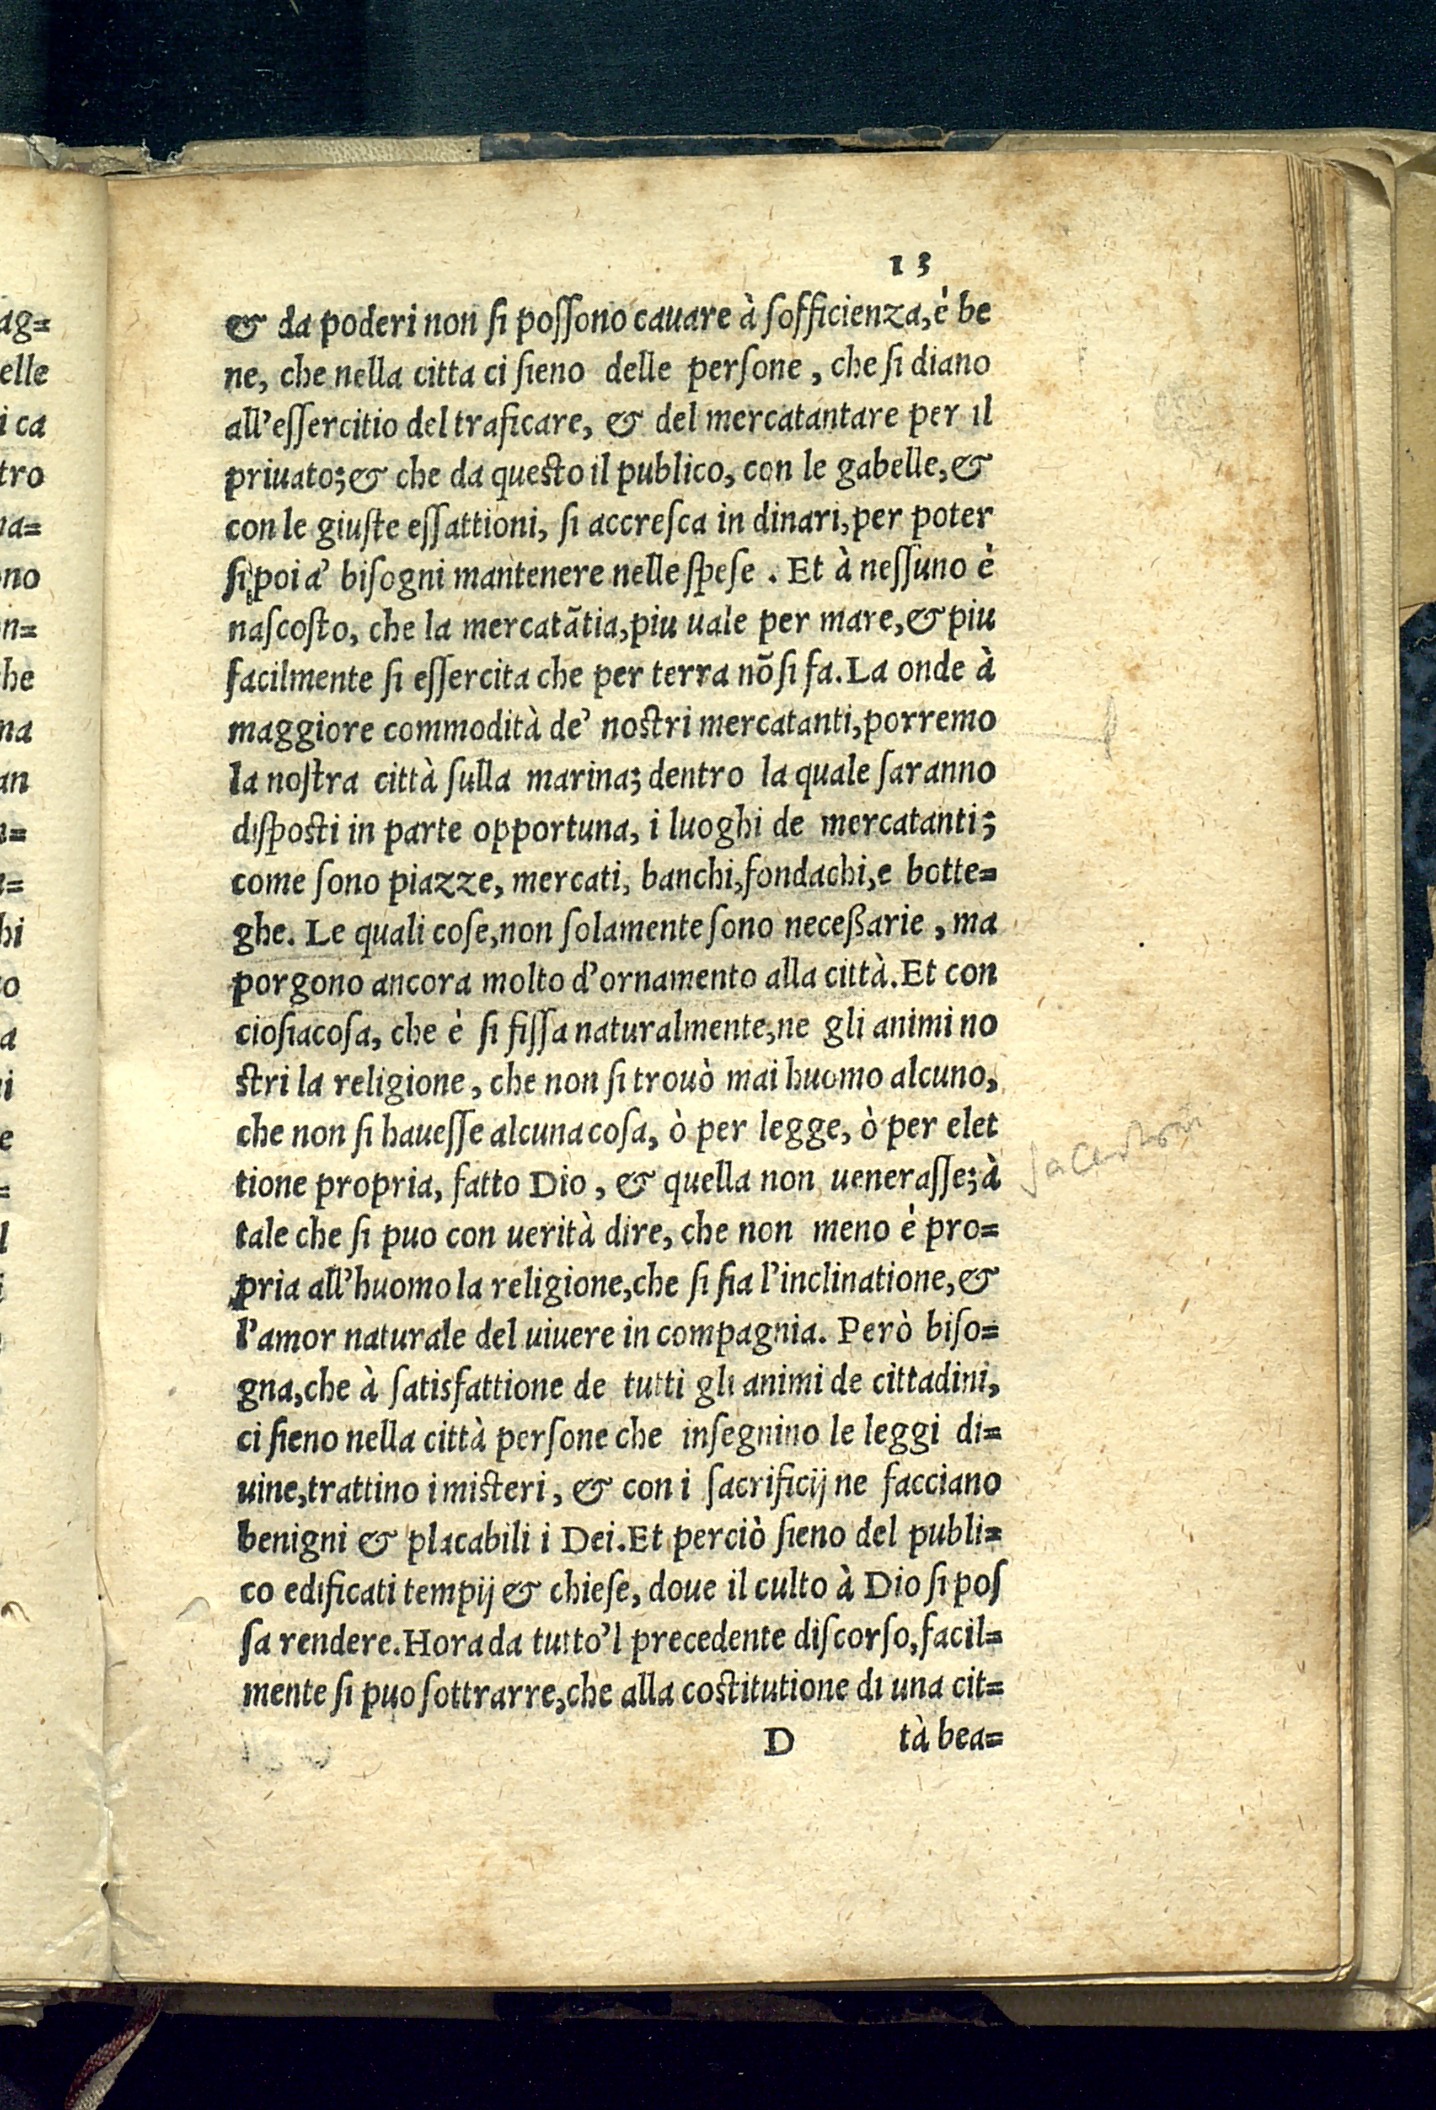 13
& da poderi non si possono cauare à sofficienza, è be
ne, che nella citta ci sieno delle persone, che si diano
all'essercitio del traficare, & del mercatantare per il
priuato; & che da questo il publico, con le gabelle, &
con le giuste essattioni, si accresca in dinari, per poter
si poi a' bisogni mantenere nelle spese. Et à nessuno è
nascosto, che la mercatātia, piu uale per mare, & piu
facilmente si essercita che per terra nō si fa. La onde à
maggiore commodità de' nostri mercatanti, porremo
la nostra città sulla marina; dentro la quale saranno
disposti in parte opportuna, i luoghi de mercatanti;
come sono piazze, mercati, banchi, fondachi, e botte=
ghe. Le quali cose, non solamente sono neceßarie, ma
porgono ancora molto d'ornamento alla città. Et con
ciosiacosa, che è si fissa naturalmente, ne gli animi no
stri la religione, che non si trouò mai huomo alcuno,
che non si hauesse alcuna cosa, ò per legge, ò per elet
tione propria, fatto Dio, & quella non uenerasse; à
tale che si puo con uerità dire, che non meno è pro=
pria all'huomo la religione, che si sia l'inclinatione, &
l'amor naturale del uiuere in compagnia. Però biso=
gna, che à satisfattione de tutti gli animi de cittadini,
ci sieno nella città persone che insegnino le leggi di=
uine, trattino i misteri, & con i sacrificij ne facciano
benigni & placabili i Dei. Et perciò sieno del publi=
co edificati tempij & chiese, doue il culto à Dio si pos
sa rendere. Hora da tutto'l precedente discorso, facil=
mente si puo sottrarre, che alla costitutione di una cit=
D tà bea=
ag=
elle
i ca
tro
na=
ono
on=
he
na
an